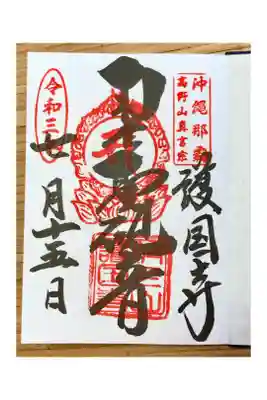 沖縄那覇
高野山真言宗
護国寺
観音
令和三年
七月十五日